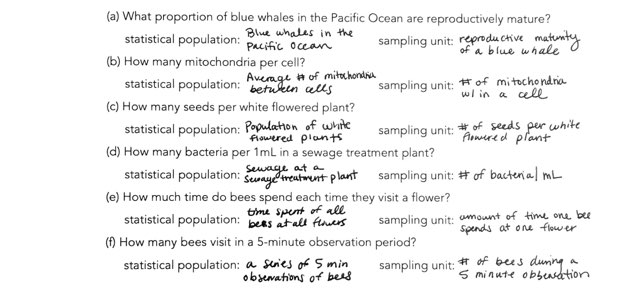 (a) What proportion of blue whales in the Pacific Ocean are reproductively mature?
statistical population: Blue whales in the Pacific Ocean sampling unit: reproductive maturity of a blue whale
(b) How many mitochondria per cell?
statistical population: Average # of mitochondria between cells sampling unit: # of mitochondria w/in a cell
(c) How many seeds per white flowered plant?
statistical population: Population of white flowered plants sampling unit: # of seeds per white flowered plant
(d) How many bacteria per 1mL in a sewage treatment plant?
statistical population: sewage at a sewage treatment plant sampling unit: # of bacteria/mL
(e) How much time do bees spend each time they visit a flower?
statistical population: time spent of all bees at all flowers sampling unit: amount of time one bee spends at one flower
(f) How many bees visit in a 5-minute observation period?
statistical population: a series of 5 min observations of bees sampling unit: # of bees during a 5 minute observation